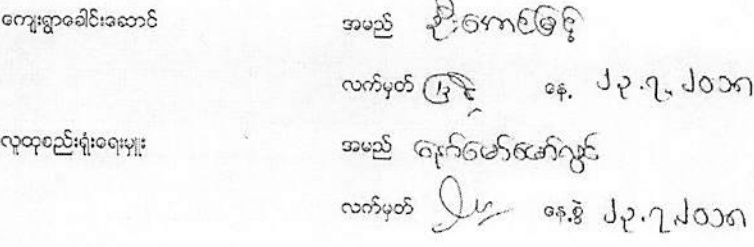 ကျေးရွာခေါင်းဆောင် အမည် စိုးအောင်မြင့်
လက်မှတ် နေ့ ၂၃.၇.၂၀၁၈
လူထုစည်းရုံးရေးမှူး အမည် နော်မော်အော်လွင်
လက်မှတ် နေ့စွဲ ၂၃.၇.၂၀၁၈